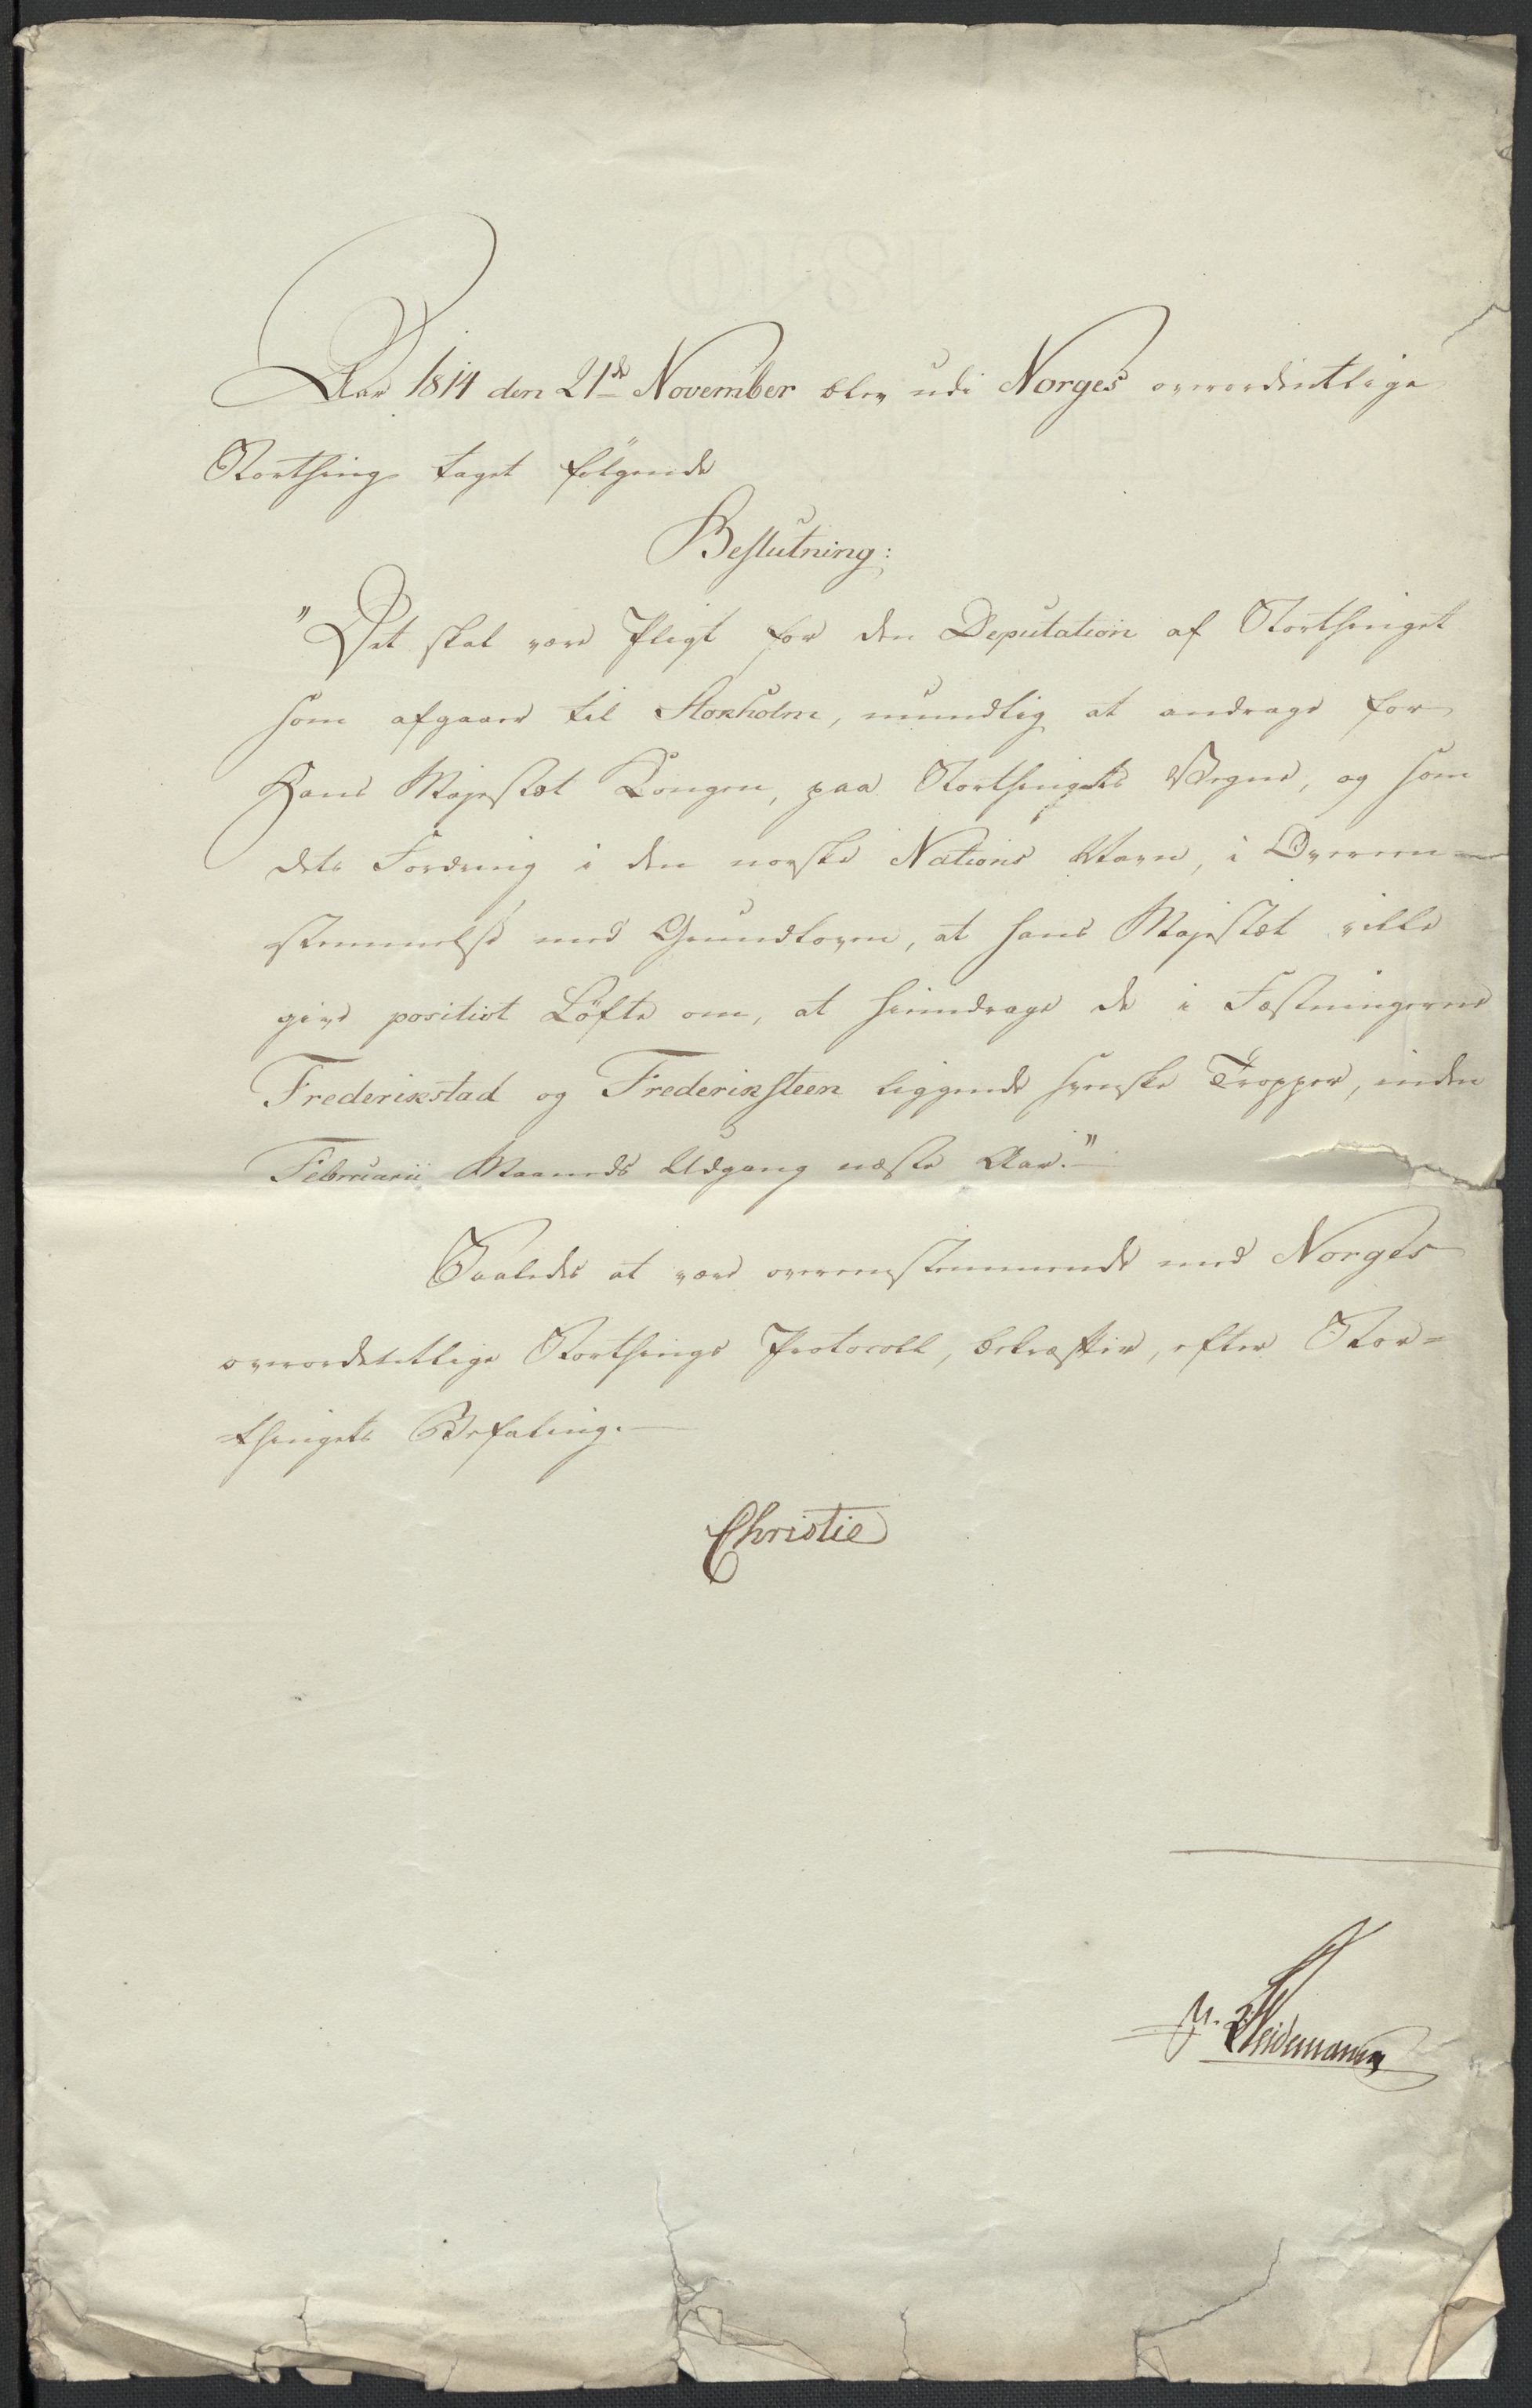 Aar 1814 den 21de November blev udi Norges overordentlige
Storthing taget følgende
Beslutning:
"Det skal være Pligt for den Deputation af Storthinget
som afgaaer til Stokholm, mundtlig at andrage for
Hans Majestæt Kongen, paa Storthingets Vegne, og som
dets Fordring i den norske Nations Navn, i Overeen-
stemmelse med Grundloven, at Hans Majestæt ville
give positivt Løfte om, at hiemdrage de i Fæstningerne
Frederikstad og Frederiksteen liggende svenske Tropper, inden
Februarii Maaneds Udgang næste Aar."
Saaledes at være overeenstemmende med Norges
overordentlige Storthings Protocoll, bekræfter, efter Stor=
=thingets Befaling.
Christie
Weidemann